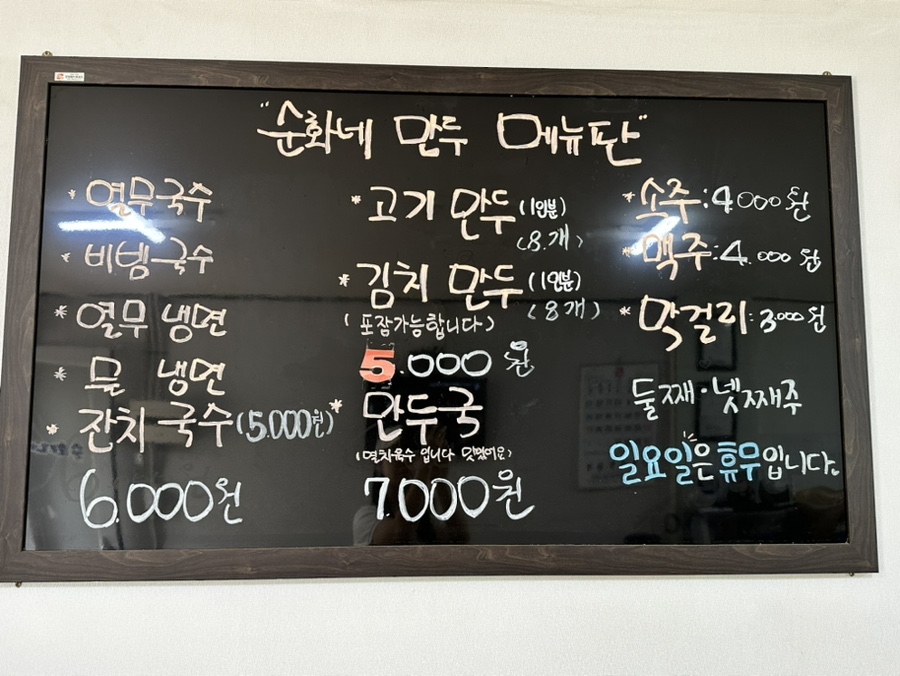 "순화네 만두 메뉴판"
* 열무국수
* 비빔국수
* 열무 냉면
* 물 냉면
* 잔치 국수 (5.000원)
6.000원
* 고기 만두 (1인분)
(8.개)
* 김치 만두 (1인분)
(8개)
(포장가능합니다)
5.000 원
* 만두국
입니다 맛있어요)
7.000원
* 소주:4000원
* 맥주:4.000원
* 막걸리:3000원
둘째·넷째주
일요일은 휴무입니다.